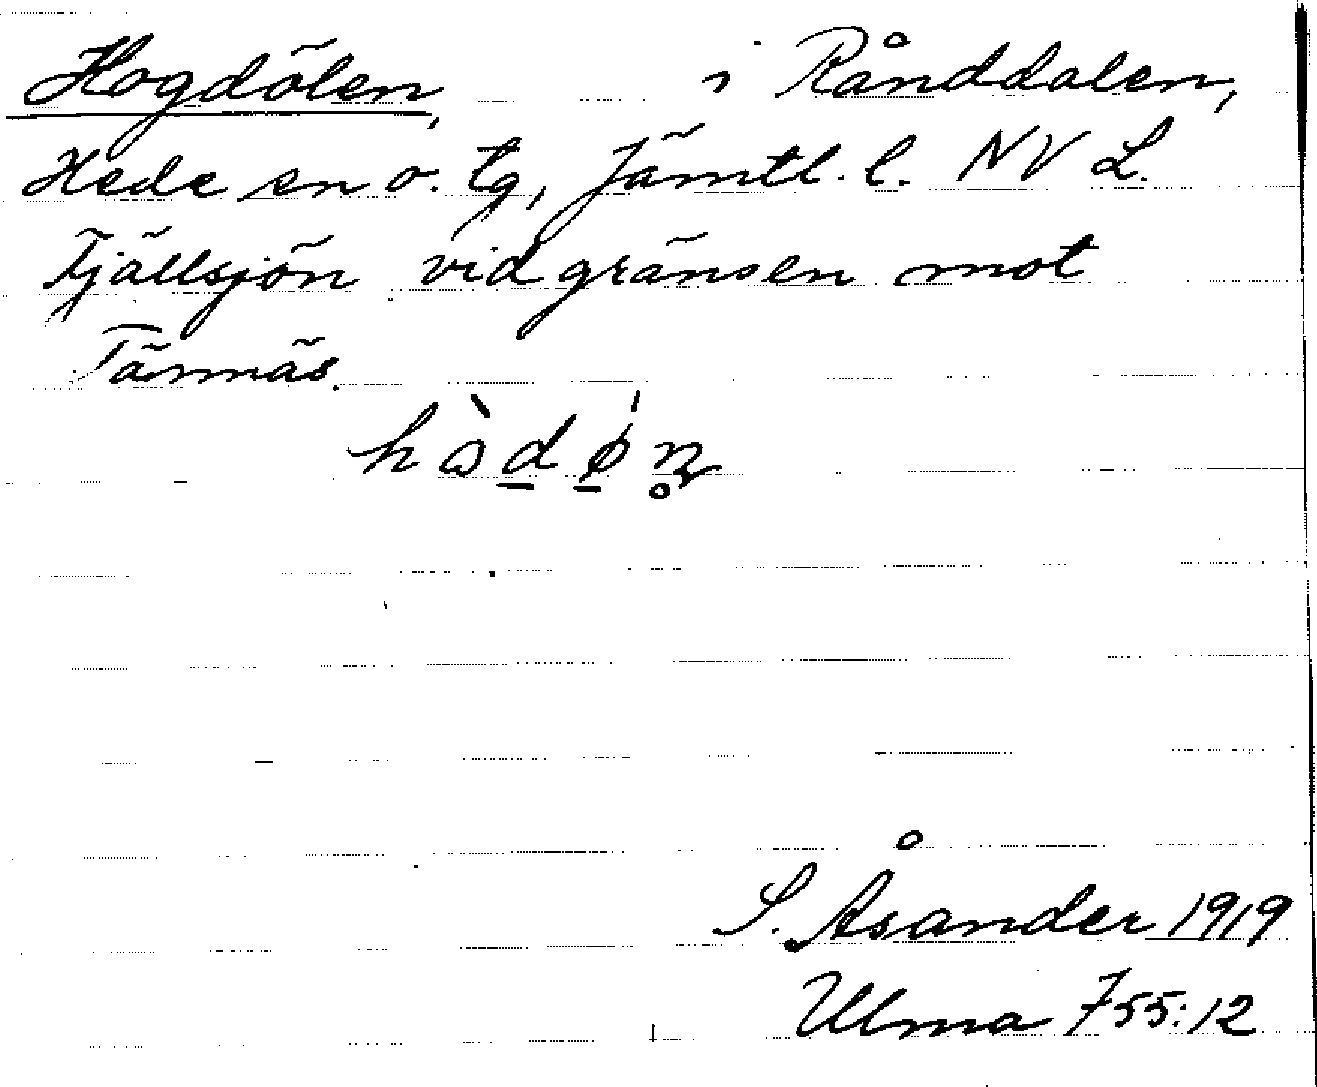 Hogdölen, i Rånddalen,
Hede sn o. tg, Jämtl. l. NV L.
Fjällsjön vid gränsen mot
Tännäs.
S. Åsander 1919
Ulma 755:12